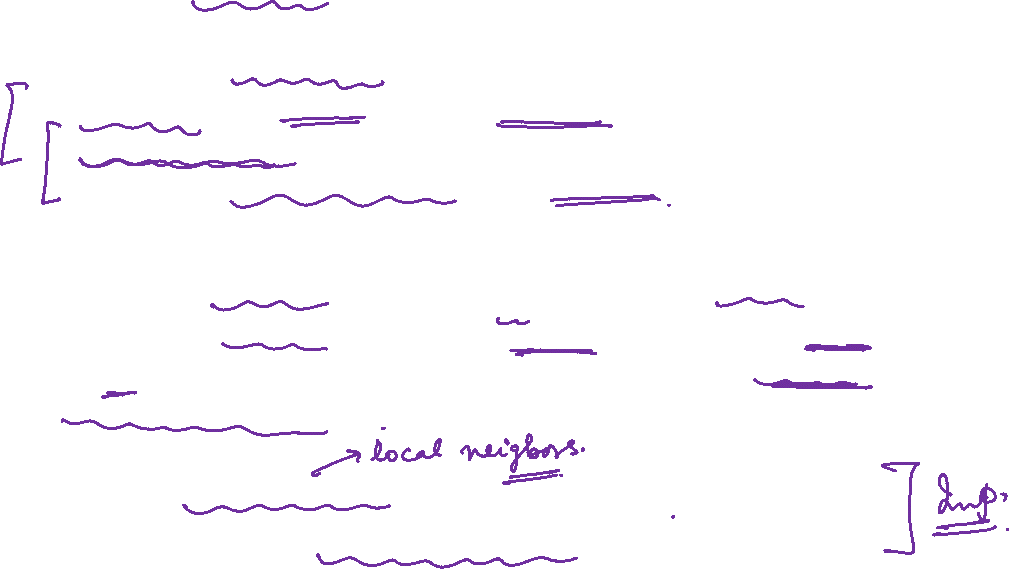 local neigbors.
Imp.